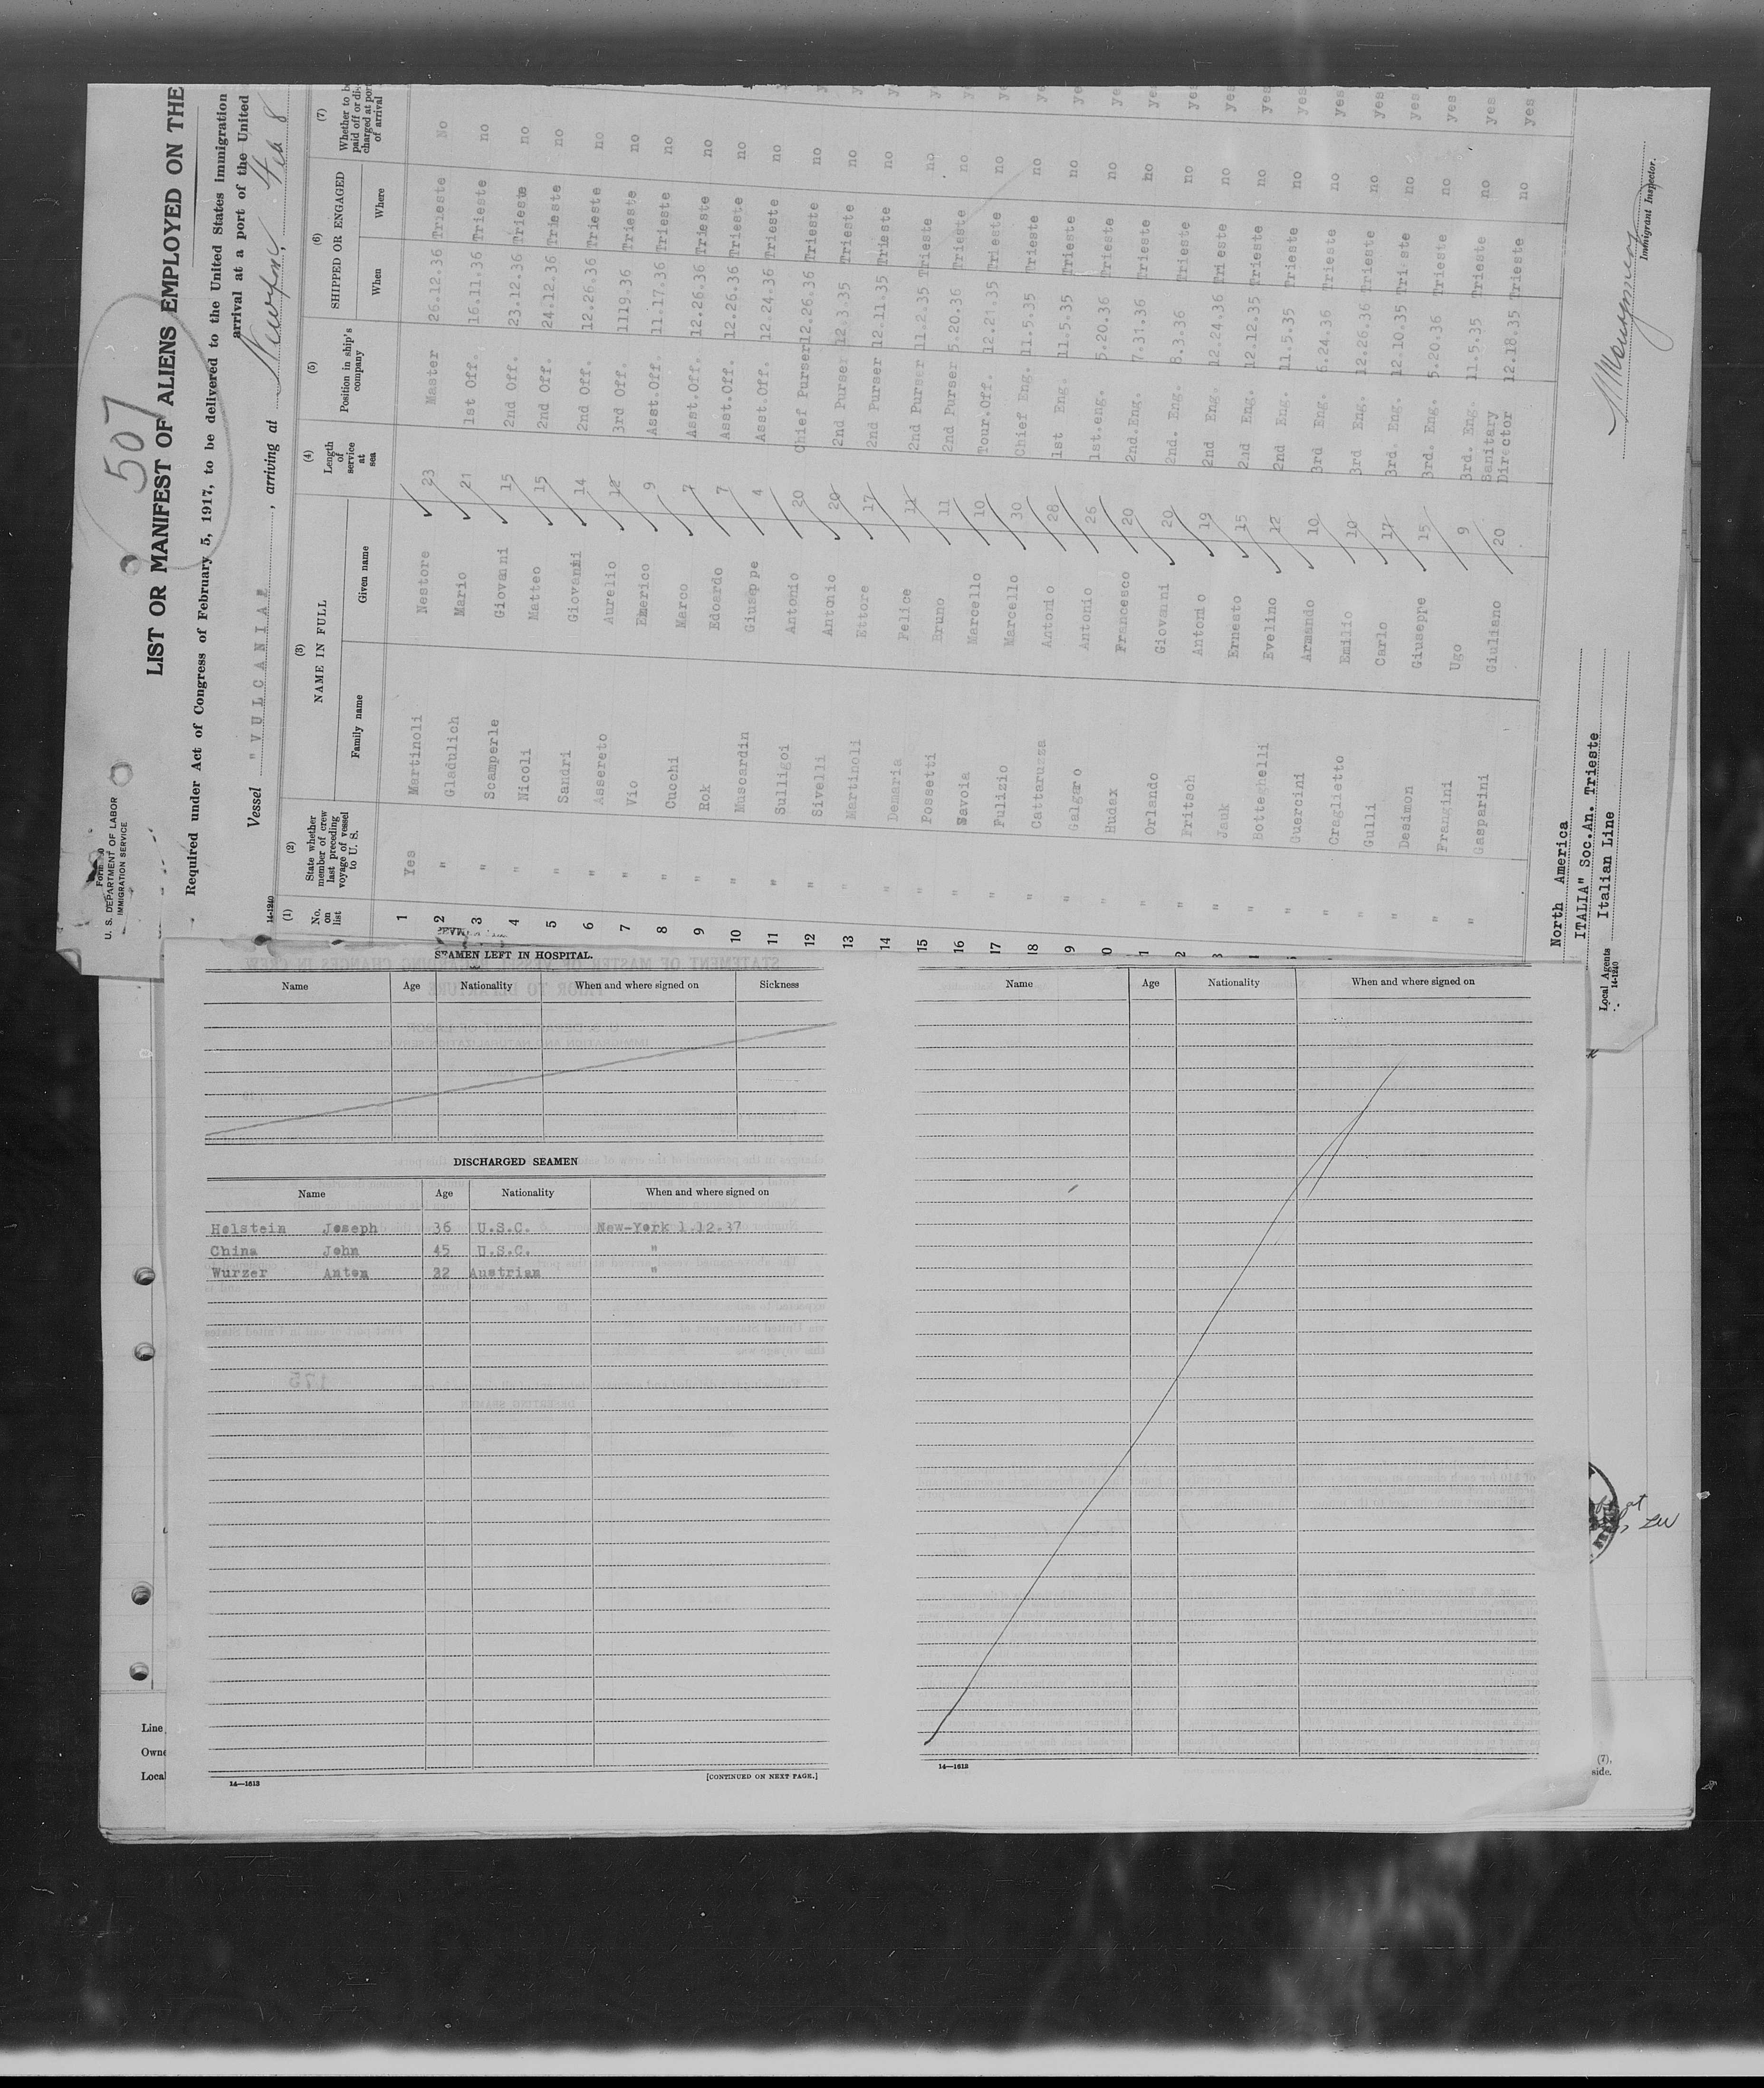 507
Form 680
U. S. DEPARTMENT OF LABOR
IMMIGRATION SERVICE
LIST OR MANIFEST OF ALIENS EMPLOYED ON THE
Required under Act of Congress of February 5, 1917, to be delivered to the United States immigration
arrival at a port of the United
Vessel "VULCANIA", arriving at Newyork, Feb 8
14-1240
(1) No. on list (2) State whether member of crew last preceding voyage of vessel to U. S. (3) NAME IN FULL Family name Given name (4) Length of service at sea (5) Position in ship's company (6) SHIPPED OR ENGAGED When Where (7) Whether to be paid off or discharged at port of arrival
1 Yes Martinoli Nestore 23 Master 26.12.36 Trieste No
2 " Gladulich Mario 21 1st Off. 16.11.36 Trieste no yes
3 " Scamperle Giovanni 15 2nd Off. 23.12.36 Trieste no
4 " Nicoli Matteo 15 2nd Off. 24.12.36 Trieste no
5 " Sandri Giovanni 14 2nd Off. 12.26.36 Trieste no
6 " Assereto Aurelio 12 3rd Off. 1119.36 Trieste no
7 " Vio Emerico 9 Asst.Off. 11.17.36 Trieste no
8 " Cucchi Marco 7 Asst.Off. 12.26.36 Trieste no
9 " Rok Edoardo 7 Asst.Off. 12.26.36 Trieste no
10 " Muscardin Giuseppe 4 Asst.Off. 12.24.36 Trieste no
11 " Sulligoi Antonio 20 Chief Purser 12.26.36 Trieste no
12 " Sivelli Antonio 20 2nd Purser 12.3.35 Trieste no
13 " Martinoli Ettore 17 2nd Purser 12.11.35 Trieste no
14 " Demaria Felice 11 2nd Purser 11.2.35 Trieste no
15 " Possetti Bruno 11 2nd Purser 5.20.36 Trieste no
16 " Savoia Marcello 10 Tour.Off. 12.21.35 Trieste no
17 " Fulizio Marcello 30 Chief Eng. 11.5.35 Trieste no
18 " Cattaruzza Antonio 28 1st Eng. 11.5.35 Trieste no
9 " Galgaro Antonio 26 1st.eng. 5.20.36 Trieste no
0 " Hudax Francesco 20 2nd.Eng. 7.31.36 Trieste no
1 " Orlando Giovanni 20 2nd. Eng. 8.3.36 Trieste no
2 " Fritsch Antonio 19 2nd Eng. 12.24.36 Trieste no yes
3 " Jauk Ernesto 15 2nd Eng. 12.12.35 Trieste no yes
" Botteghelli Evelino 12 2nd Eng. 11.5.35 Trieste no yes
" Guercini Armando 10 3rd Eng. 6.24.36 Trieste no yes
" Craglietto Emilio 10 3rd Eng. 12.26.36 Trieste no yes
" Gulli Carlo 17 3rd. Eng. 12.10.35 Trieste no yes
" Desimon Giuseppe 15 3rd. Eng. 5.20.36 Trieste no yes
" Frangini Ugo 9 3rd. Eng. 11.5.35 Trieste no yes
" Gasparini Giuliano 20 Sanitary Director 12.18.35 Trieste no yes
North America
ITALIA" Soc.An. Trieste
Local Agents Italian Line
14-1240
Immigrant Inspector.
SEAMEN LEFT IN HOSPITAL.
Name Age Nationality When and where signed on Sickness
DISCHARGED SEAMEN
Name Age Nationality When and where signed on
Holstein Joseph 36 U.S.C. New-York 1.12.37
China John 45 U.S.C. "
Wurzer Anton 32 Austrian "
14—1613
[CONTINUED ON NEXT PAGE.]
Name Age Nationality When and where signed on
14—1613
Line
Owne
Local
(7),
side.